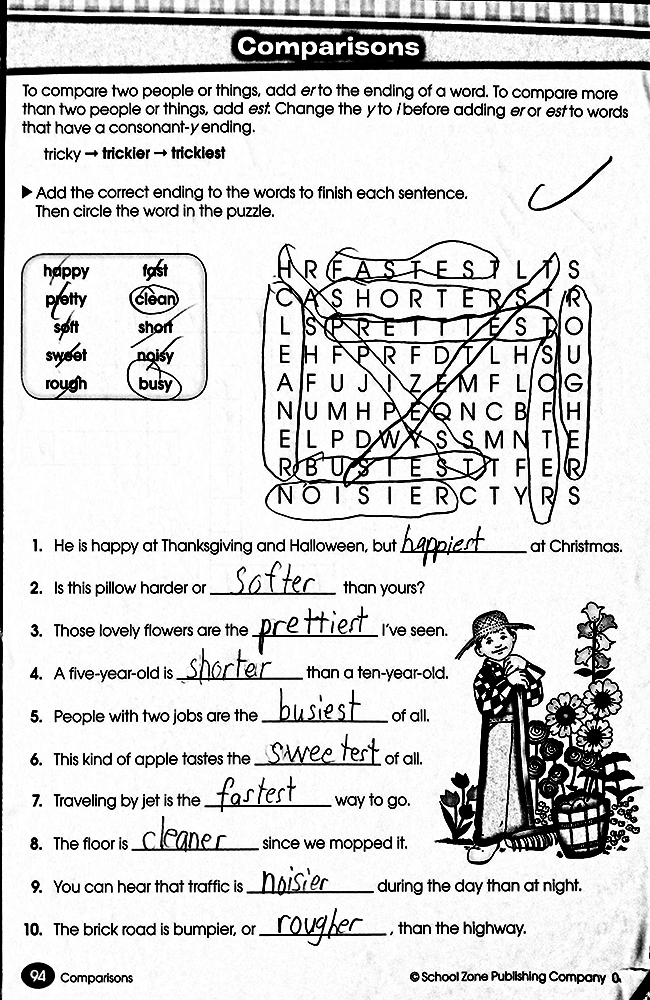 Comparisons
To compare two people or things, add er to the ending of a word. To compare more
than two people or things, add est. Change the y to i before adding er or est to words
that have a consonant-y ending.
tricky → trickier → trickiest
▶ Add the correct ending to the words to finish each sentence.
Then circle the word in the puzzle.
happy fast
pretty clean
soft short
sweet noisy
rough busy
H R F A S T E S T L T S
C A S H O R T E R S T R
L S P R E T T I E S T O
E H F P R F D T L H S U
A F U J I Z E M F L O G
N U M H P E Q N C B F H
E L P D W Y S S M N T E
R B U S I E S T T F E R
N O I S I E R C T Y R S
1. He is happy at Thanksgiving and Halloween, but happiest at Christmas.
2. Is this pillow harder or softer than yours?
3. Those lovely flowers are the prettiest I've seen.
4. A five-year-old is shorter than a ten-year-old.
5. People with two jobs are the busiest of all.
6. This kind of apple tastes the sweetest of all.
7. Traveling by jet is the fastest way to go.
8. The floor is cleaner since we mopped it.
9. You can hear that traffic is noisier during the day than at night.
10. The brick road is bumpier, or rougher, than the highway.
94 Comparisons
© School Zone Publishing Company